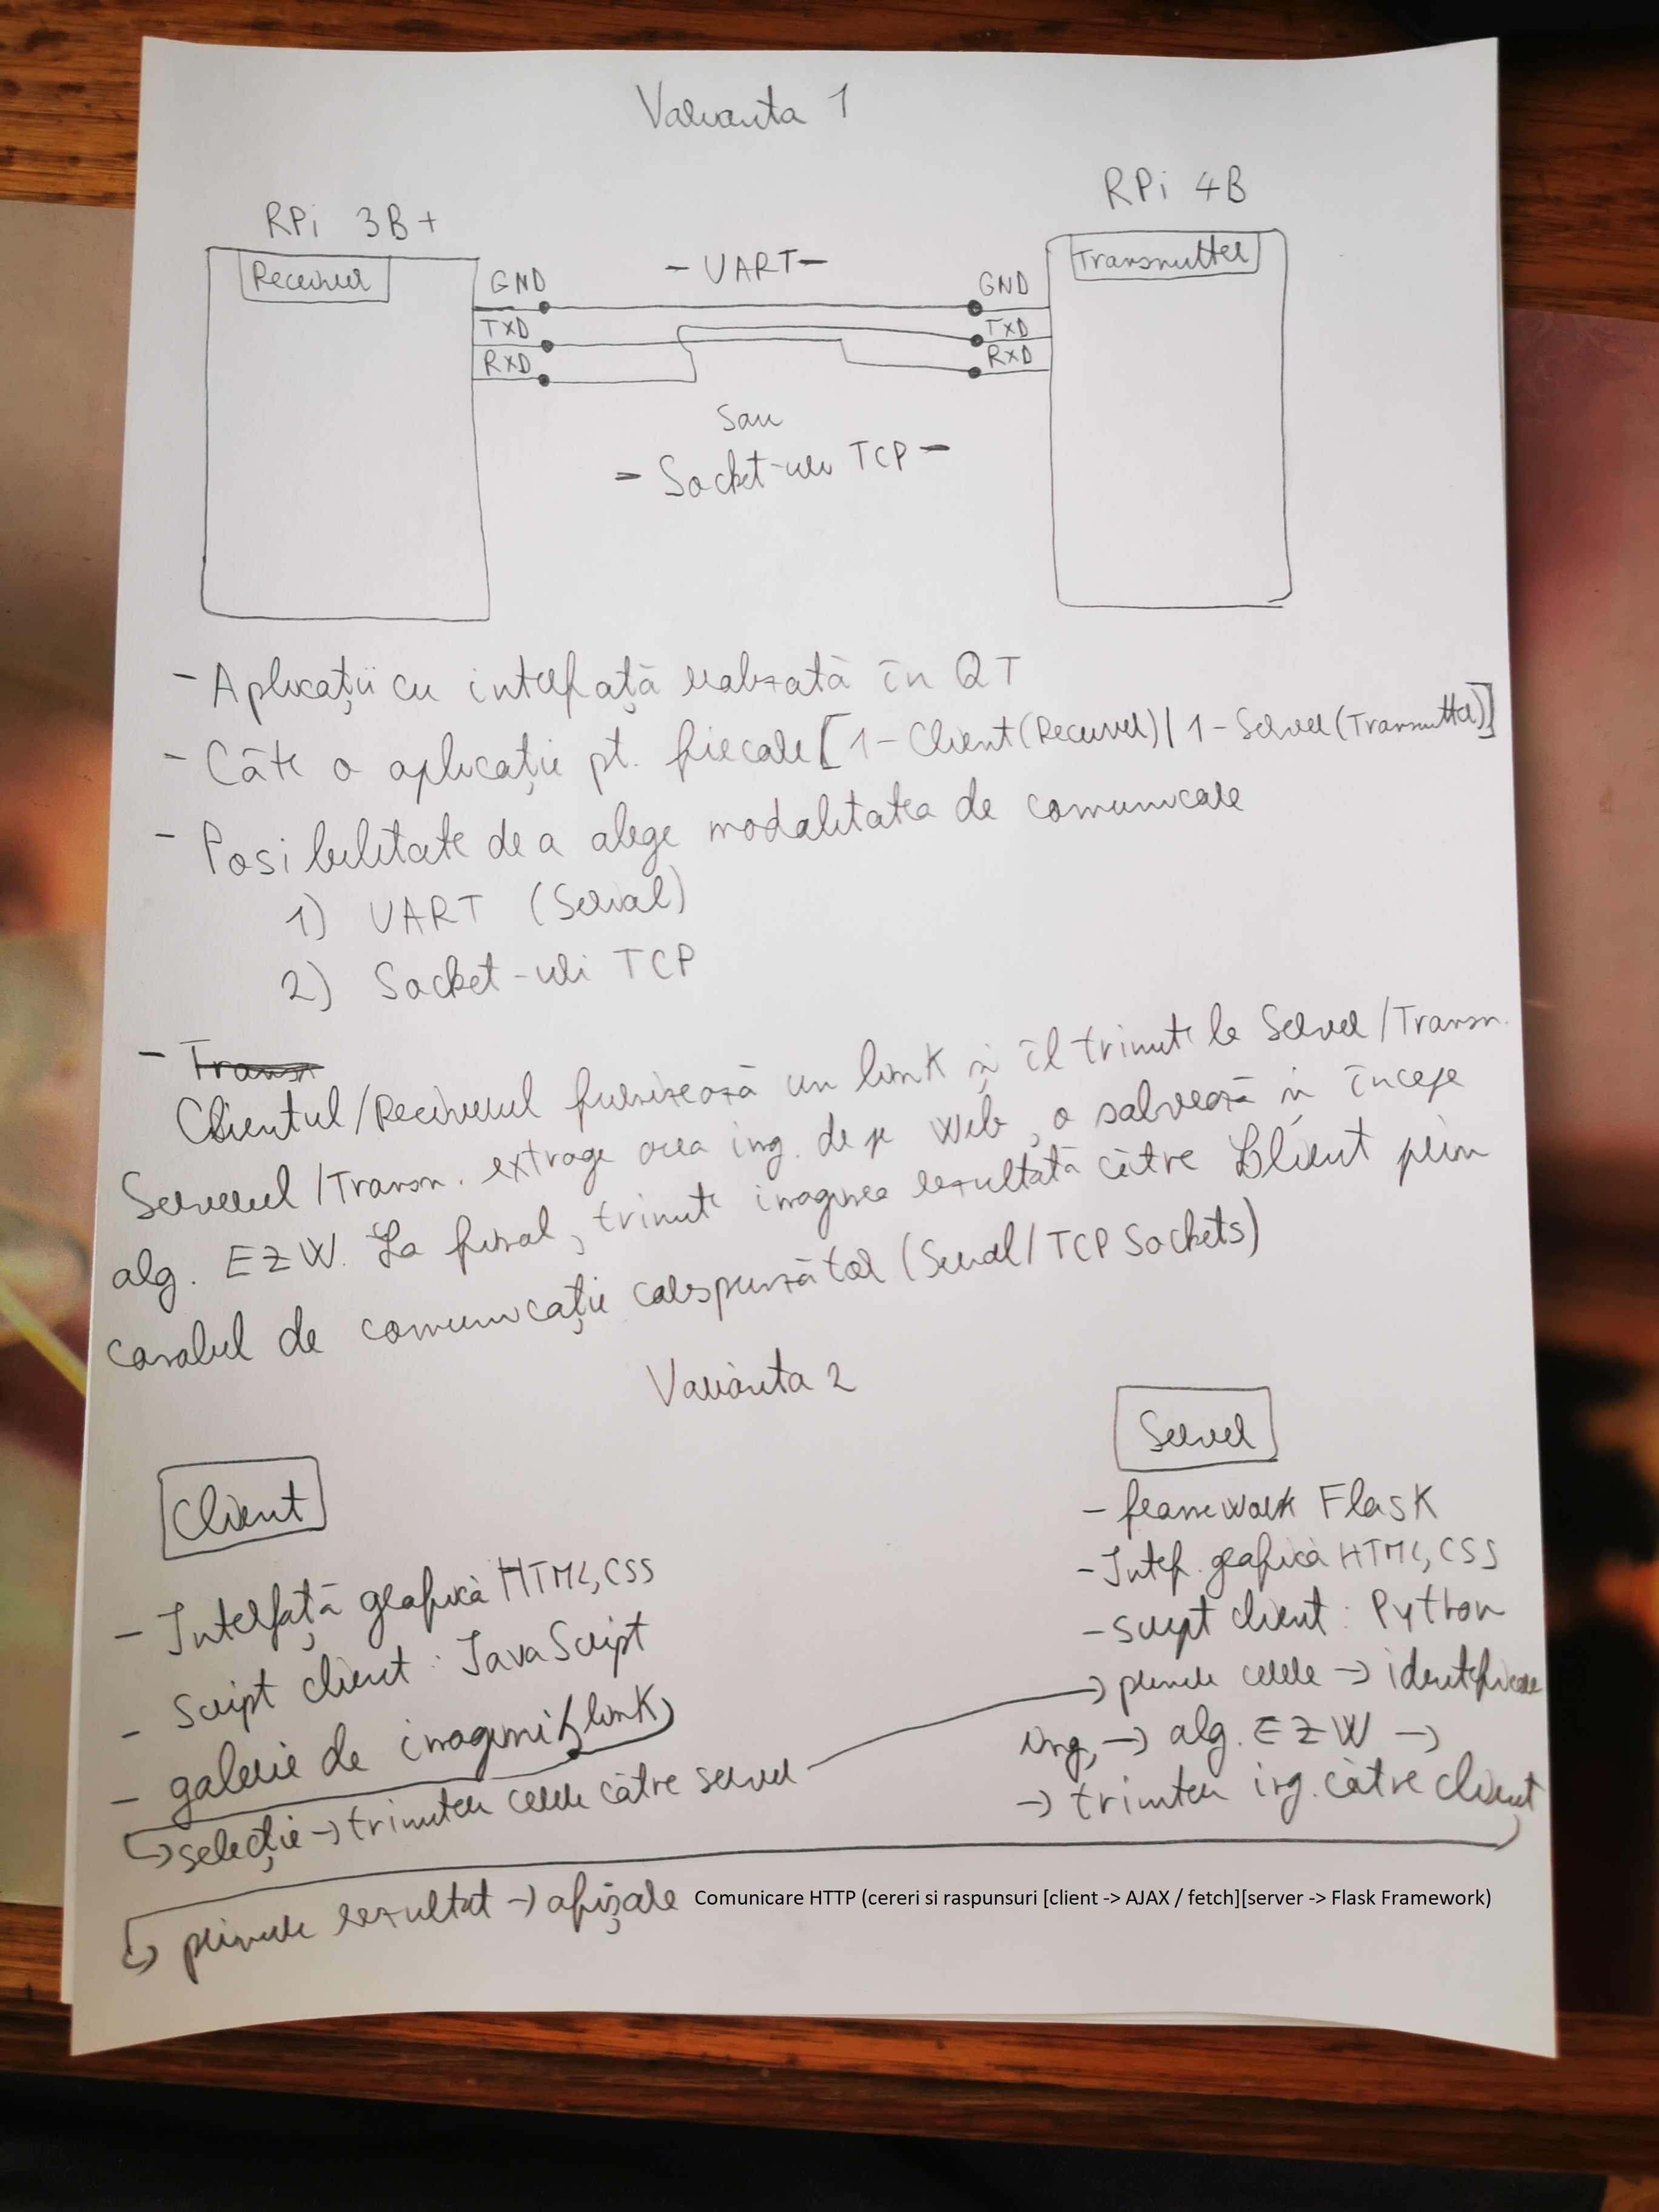 Varianta 1
RPi 3B+
RPi 4B
Receiver
Transmitter
- UART -
GND
TXD
RXD
GND
TXD
RXD
Sau
- Socket-uri TCP -
- Aplicații cu interfață realizată în QT
- Câte o aplicație pt. fiecare [1-Client(Receiver) | 1-Server(Transmitter)]
- Posibilitate de a alege modalitatea de comunicare
1) UART (Serial)
2) Socket-uri TCP
- Transm
Clientul/Receiverul furnizează un link și îl trimite la Server/Transm.
Serverul/Transm. extrage acea img. de pe Web, o salvează și începe
alg. EZW. La final, trimite imaginea rezultată către Client prin
canalul de comunicație corespunzător (Serial/TCP Sockets)
Varianta 2
Client
- Interfață grafică HTML, CSS
- Script client: JavaScript
- galerie de imagini (link)
↳ selecție → trimitere cerere către server
Server
- framework Flask
- Interf. grafică HTML, CSS
- script client: Python
→ primire cerere → identificare
img. → alg. EZW →
→ trimitere img. către client
↳ primire rezultat → afișare
Comunicare HTTP (cereri si raspunsuri [client -> AJAX / fetch][server -> Flask Framework)